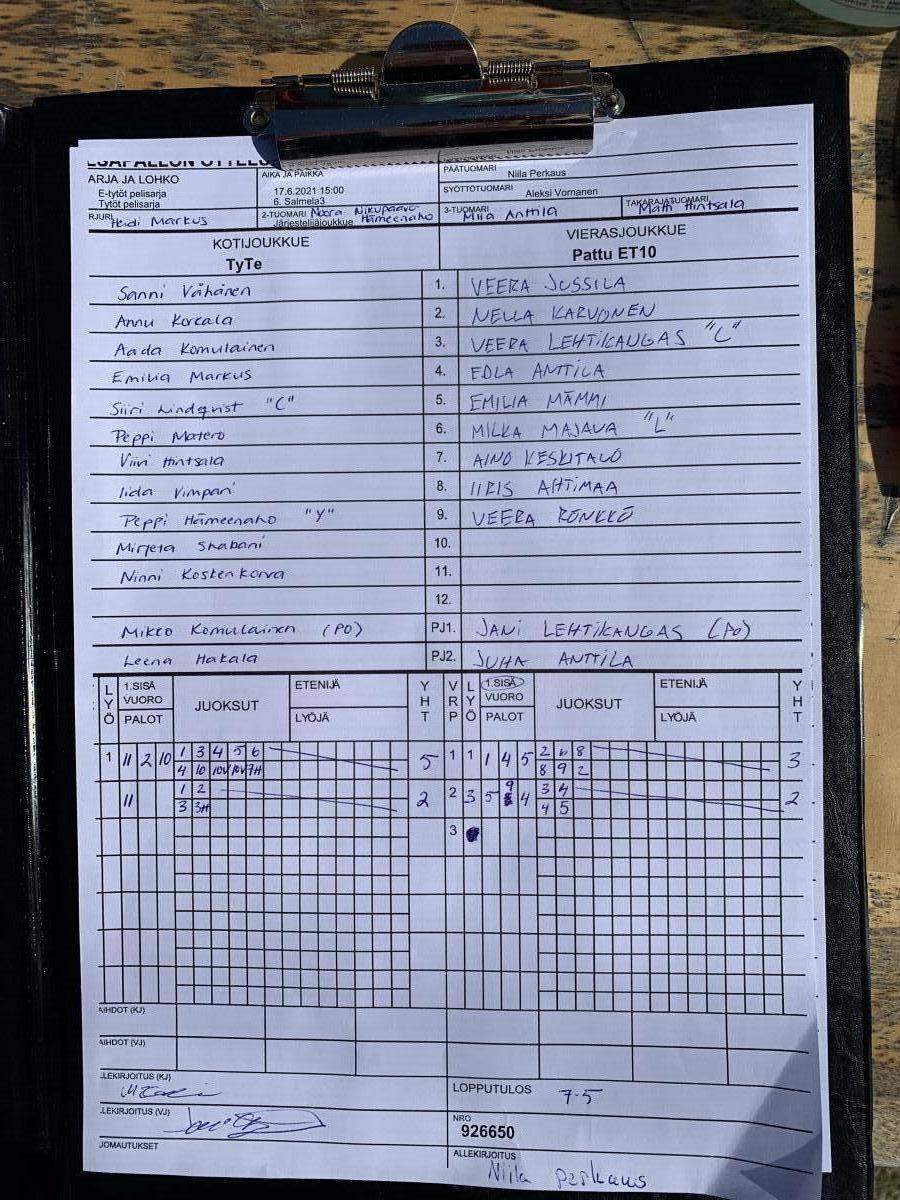 ESÄPALLON OTTELU
ARJA JA LOHKO
E-tytöt pelisarja
Tytöt pelisarja
AIKA JA PAIKKA
17.6.2021 15:00
6. Salmela3
PÄÄTUOMARI Niila Perkaus
SYÖTTÖTUOMARI Aleksi Vornanen
RJURI Heidi Markus
2-TUOMARI Noora Nikupaavo-
Järjestelijäloukkue Hämeenaho
3-TUOMARI Miia Anttila
TAKARAJATUOMARI Matti Hintsala
KOTIJOUKKUE
TyTe
VIERASJOUKKUE
Pattu ET10
Sanni Vähänen 1. VEERA JUSSILA
Annu Korkala 2. NELLA KARVONEN
Aada Komulainen 3. VEERA LEHTIKANGAS "C"
Emilia Markus 4. EDLA ANTTILA
Siiri Lindqvist "C" 5. EMILIA MÄMMI
Peppi Matero 6. MILKA MAJAVA "L"
Viivi Hintsala 7. AINO KESKITALO
Iida Vimpari 8. IIRIS AHTIMAA
Peppi Hämeenaho "Y" 9. VEERA RÖNKKÖ
Mirjeta Shabani 10.
Ninni Koskenkorva 11.
12.
Mikko Komulainen (PO) PJ1. JANI LEHTIKANGAS (PO)
Leena Hakala PJ2. JUHA ANTTILA
LYÖ 1.SISÄ VUORO PALOT JUOKSUT ETENIJÄ LYÖJÄ YHT VRP LYÖ 1.SISÄ VUORO PALOT JUOKSUT ETENIJÄ LYÖJÄ YHT
1 11 2 10 1 3 4 5 6 5 1 1 1 4 5 2 6 8 3
4 10 10V 10V 7H 8 9 2
11 1 2 2 2 3 5 9 4 3 4 2
3 3H 4 5
3
AIHDOT (KJ)
AIHDOT (VJ)
LEKIRJOITUS (KJ)
LOPPUTULOS 7-5
LEKIRJOITUS (VJ)
NRO
926650
UOMAUTUKSET
ALLEKIRJOITUS
Niila perkaus